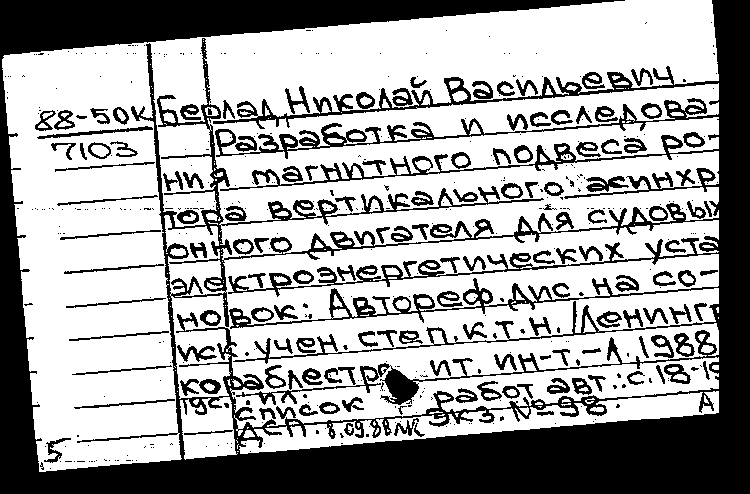 88-50к
7103
Берлад, Николай Васильевич.
Разработка и исследова-
ния магнитного подвеса ро-
тора вертикального асинхр
онного двигателя для судовых
электроэнергетических уста
новок: Автореф. дис. на со-
иск. учен. степ. к.т.н. /Ленингр
кораблестро ит. ин-т.-Л., 1988
19с.: ил.
список работ авт.: с.18-19
ДСП. 8.09.88 экз. №98.
5
А